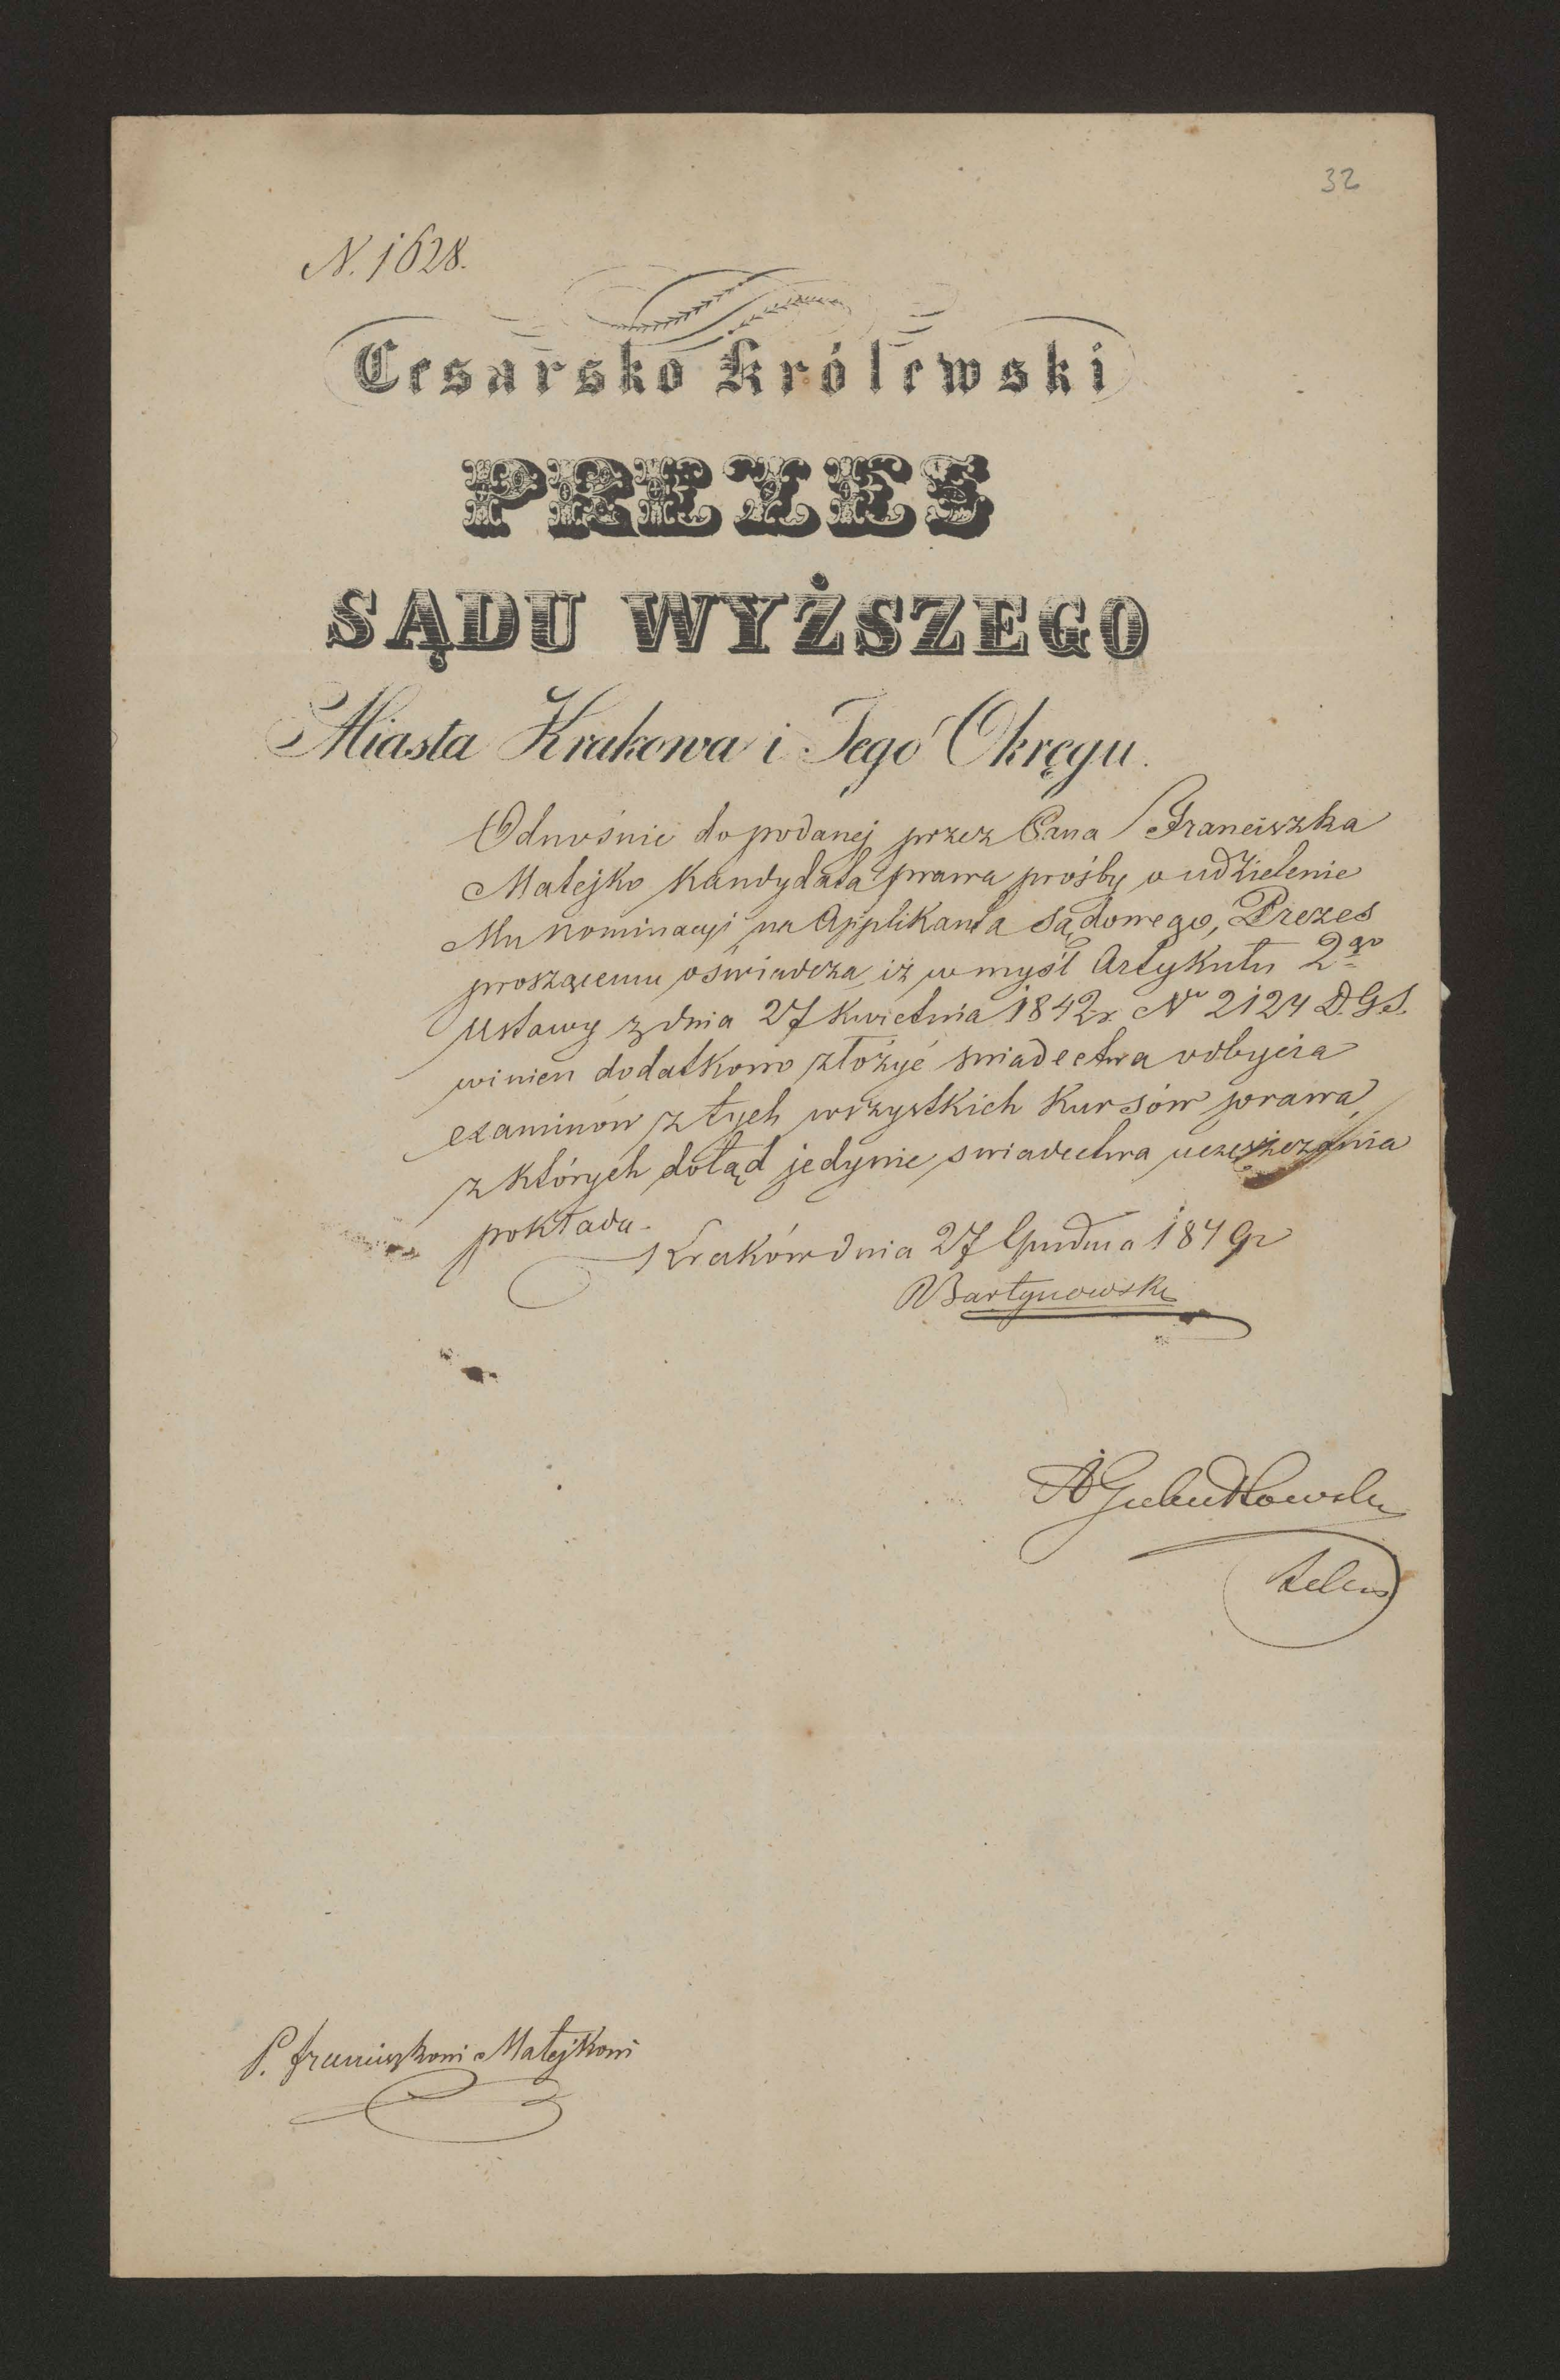 32
N. 1628.
Cesarsko Królewski
PREZES
SĄDU WYŻSZEGO
Miasta Krakowa i Jego Okręgu.
Odnośnie do podanej przez Pana Franciszka
Matejko Kandydata prawa prośby o udzielenie
Mu nominacyi na Applikanta Sądowego, Prezes
proszącemu oświadcza, iż w myśl Artykułu 2go
Ustawy z dnia 27 Kwietnia 1842r. No 2124 D.G.S.
winien dodatkowo złożyć świadectwa odbycia
examinów z tych wszystkich Kursów prawa,
z których dotąd jedynie swiadectwa uczęszczania
pokłada.
Kraków dnia 27 Grudnia 1849r
Bartynowski
P. Franciszkowi Matejkowi